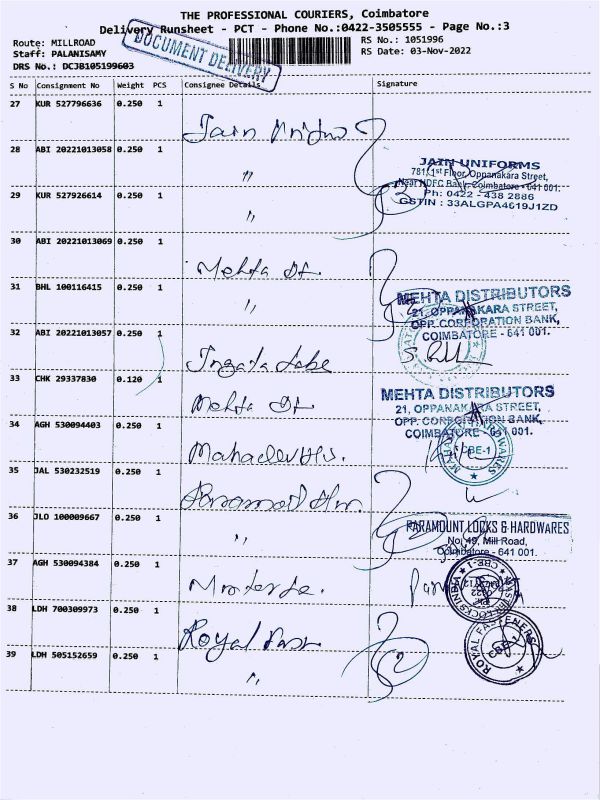 THE PROFESSIONAL COURIERS, Coimbatore
Delivery Runsheet - PCT - Phone No.:0422-3505555 - Page No.:3
Route: MILLROAD
Staff: PALANISAMY
DRS No.: DCJB105199603
DOCUMENT DELIVERY
RS No.: 1051996
RS Date: 03-Nov-2022
S No Consignment No Weight PCS Consignee Details Signature
27 KUR 527796636 0.250 1 Jain
28 ABI 20221013058 0.250 1 "
JAIN UNIFORMS
781, 1st Floor, Oppanakara Street,
Near HDFC Bank, Coimbatore - 641 001.
Ph: 0422 - 438 2886
GSTIN : 33ALGPA4619J1ZD
29 KUR 527926614 0.250 1 "
30 ABI 20221013069 0.250 1 Mehta Dt.
31 BHL 100116415 0.250 1 "
MEHTA DISTRIBUTORS
21, OPPANAKARA STREET,
OPP. CORPORATION BANK,
COIMBATORE - 641 001.
32 ABI 20221013057 0.250 1
33 CHK 29337830 0.120 1 Mehta Dt
MEHTA DISTRIBUTORS
21, OPPANAKARA STREET,
OPP. CORPORATION BANK,
COIMBATORE - 641 001.
34 AGH 530094403 0.250 1
CBE-1
35 JAL 530232519 0.250 1
36 JLO 100009667 0.250 1 "
PARAMOUNT LOCKS & HARDWARES
No. 49, Mill Road,
Coimbatore - 641 001.
37 AGH 530094384 0.250 1
38 LDH 700309973 0.250 1 Royal
ROYAL FASTENERS
CBE-1
39 LDH 505152659 0.250 1 "